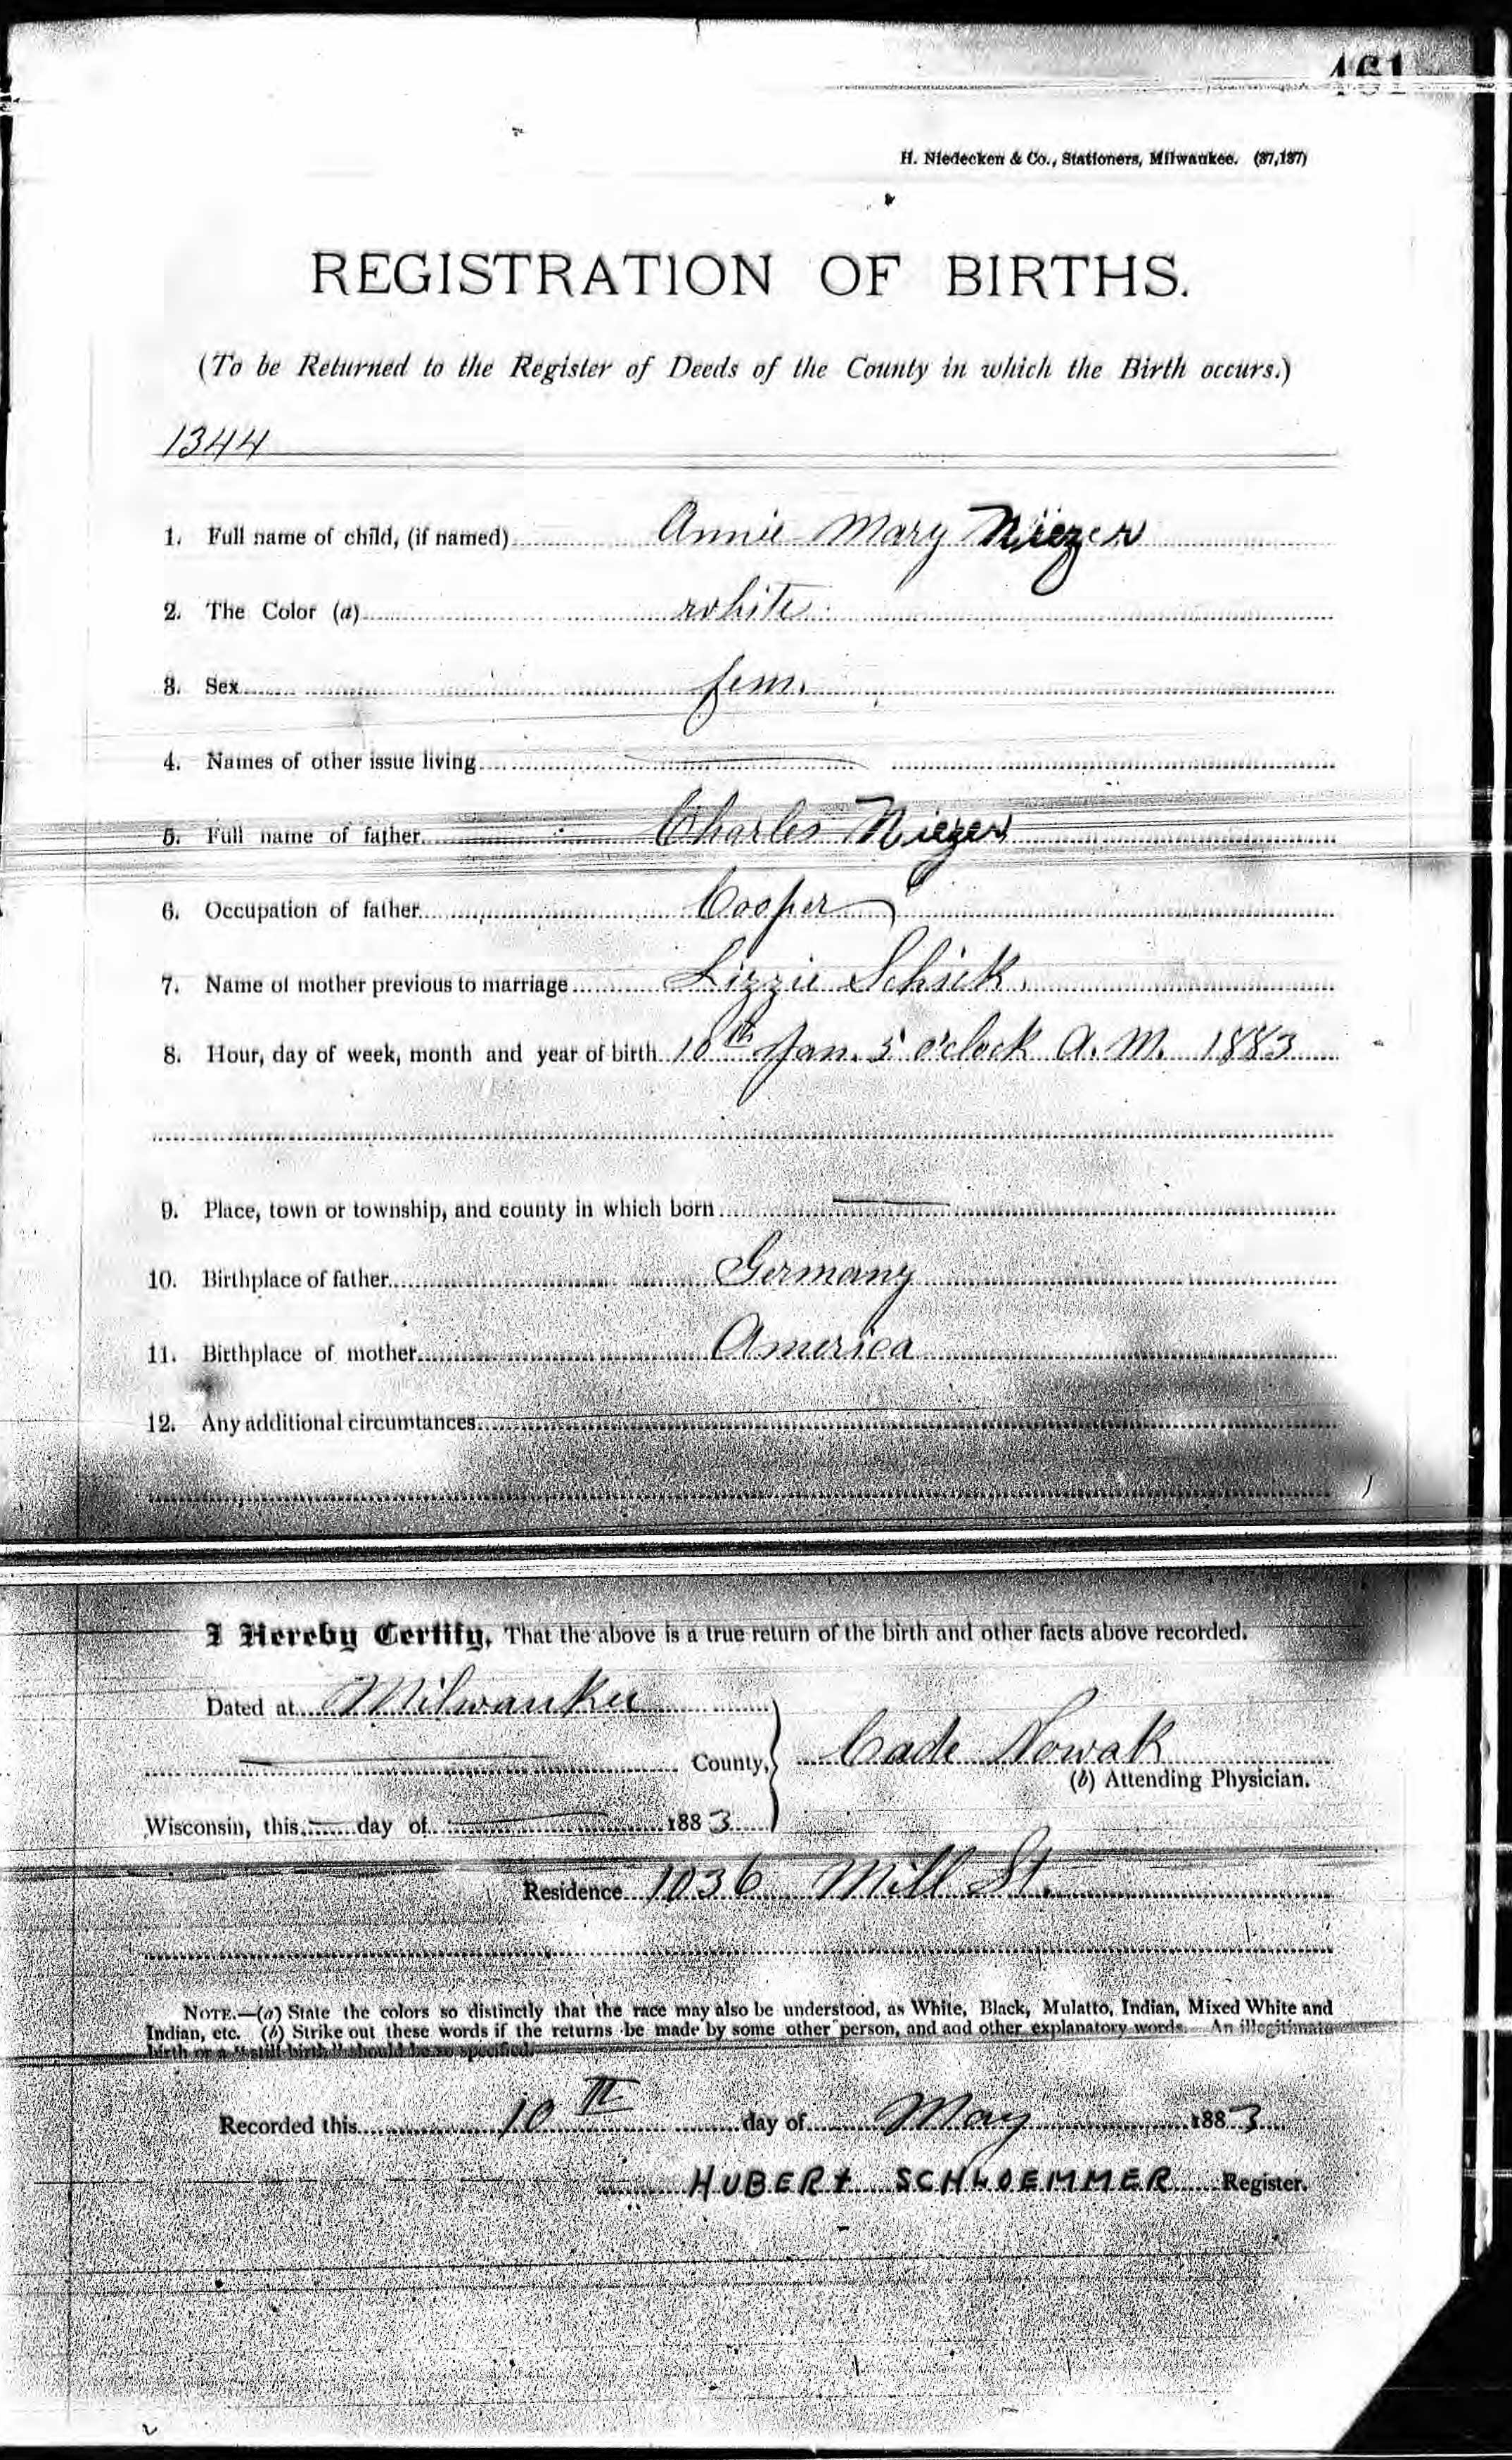 461
H. Niedecken & Co., Stationers, Milwaukee. (87,187)
REGISTRATION OF BIRTHS.
(To be Returned to the Register of Deeds of the County in which the Birth occurs.)
1344
1. Full name of child, (if named) Annie Mary Niezen
2. The Color (a) white
3. Sex fem.
4. Names of other issue living
5. Full name of father Charles Niezen
6. Occupation of father Cooper
7. Name of mother previous to marriage Lizzie Schick
8. Hour, day of week, month and year of birth 10th Jan. 5 o'clock A. M. 1883
9. Place, town or township, and county in which born
10. Birthplace of father Germany
11. Birthplace of mother America
12. Any additional circumtances
I Hereby Certify, That the above is a true return of the birth and other facts above recorded.
Dated at Milwaukee
County, Cade Nowak
(b) Attending Physician.
Wisconsin, this day of 1883
Residence 1036 Mill St.
NOTE.—(a) State the colors so distinctly that the race may also be understood, as White, Black, Mulatto, Indian, Mixed White and
Indian, etc. (b) Strike out these words if the returns be made by some other person, and add other explanatory words. An illegitimate
birth or a "still-birth" should be so specified.
Recorded this 10th day of May 1883
HUBERT SCHLOEMMER Register.